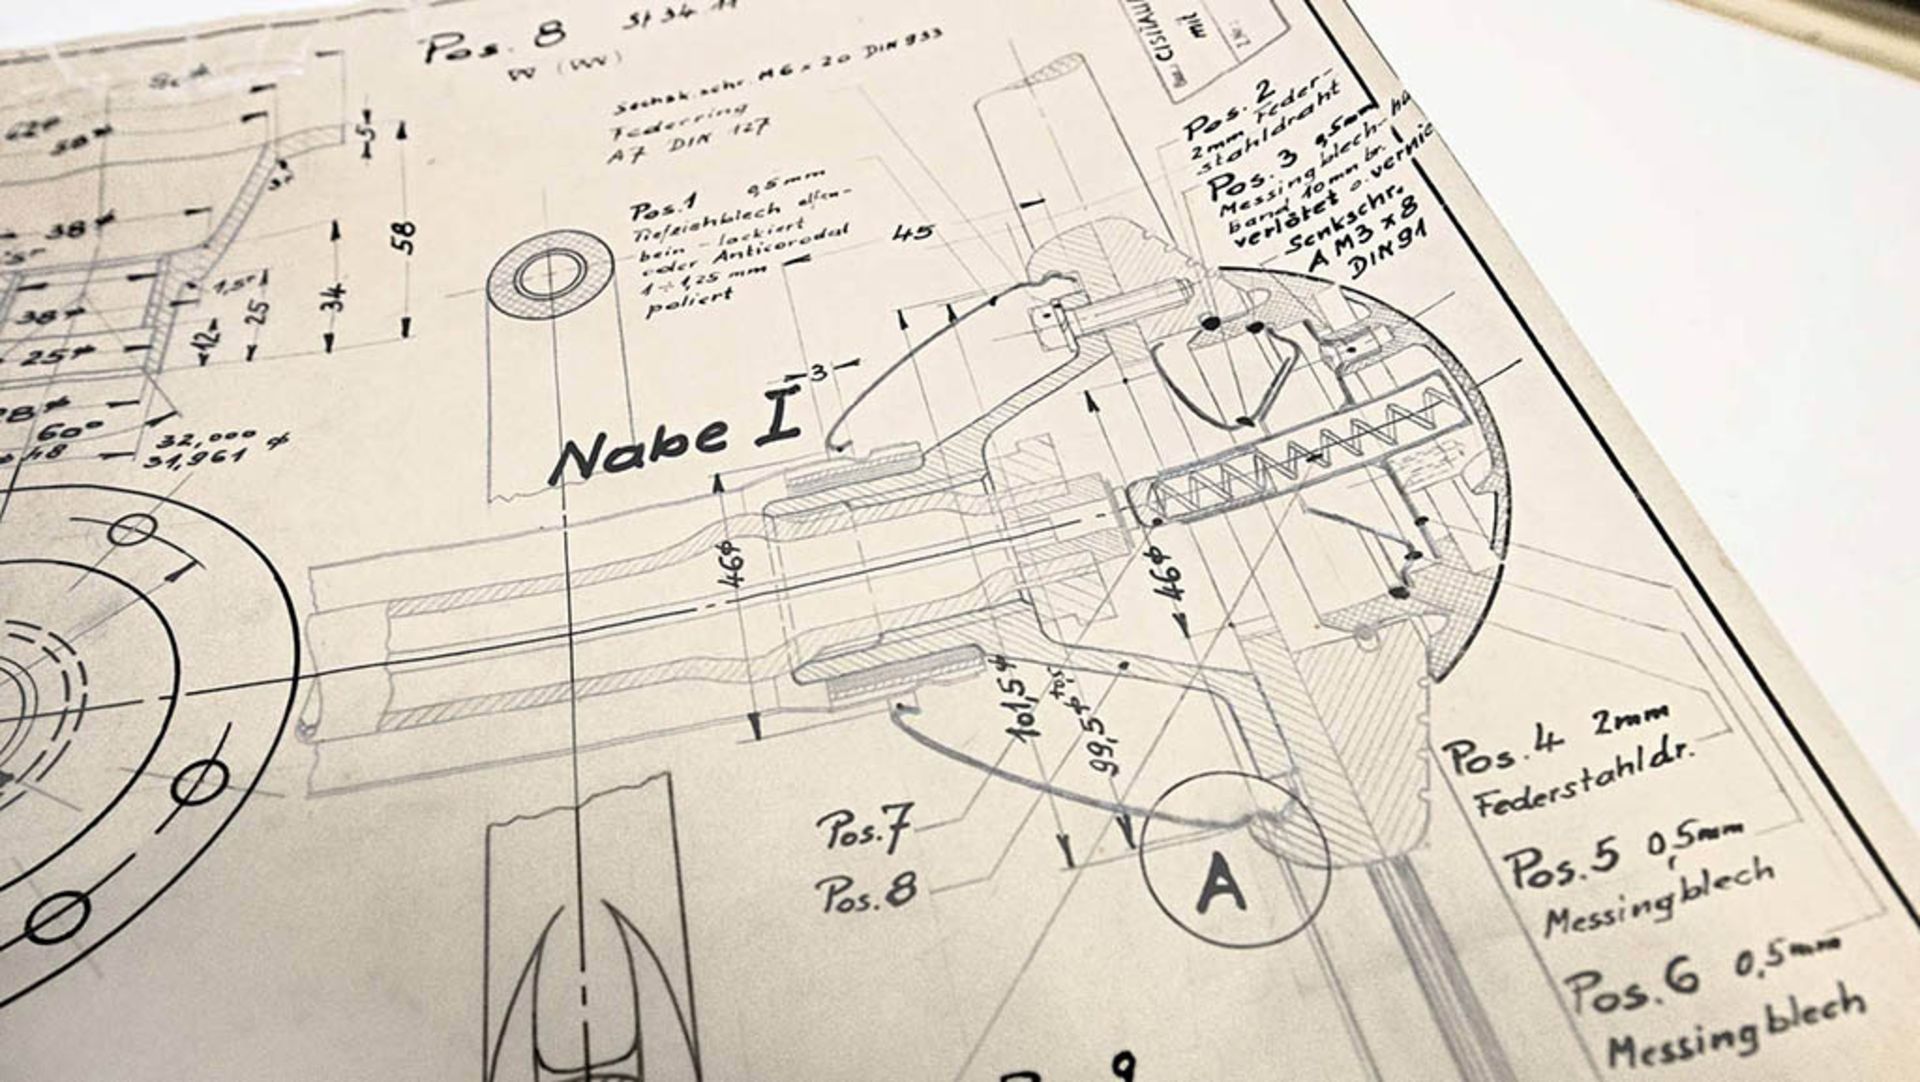 Pos. 8 St 34 11
W (W)
Sechsk.schr. M6 x 20 DIN 933
Federring
A7 DIN 127
Pos.1 0,5mm
Tiefziehblech elfen-
bein-lackiert
oder Anticorodal
1÷1,25 mm
poliert
mit
Pos. 2
2mm Feder-
stahldraht
Pos. 3 0,5mm
Messingblech-
band 10mm br.
verlötet o. vernie
Senkschr.
A M3 x 8
DIN 91
5
58
38ø
34
1,5
25
12
38ø
25ø
60°
32,000 ø
31,961
45
3
Nabe I
46ø
46ø
101,5ø
99,5ø
Pos.7
Pos.8
A
Pos.4 2mm
Federstahldr.
Pos.5 0,5mm
Messingblech
Pos.6 0,5mm
Messingblech
9